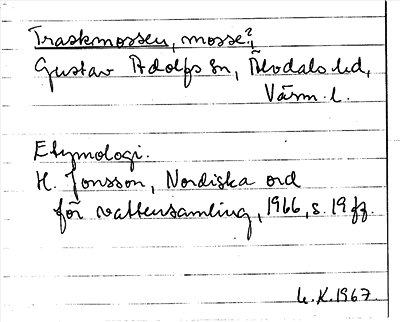 Traskmossen, mosse?,
Gustav Adolfs sn, Älvdals hd,
Värml.
Etymologi.
H. Jonsson, Nordiska ord
för vattensamling, 1966, s. 19 ff.
L.K. 1967.